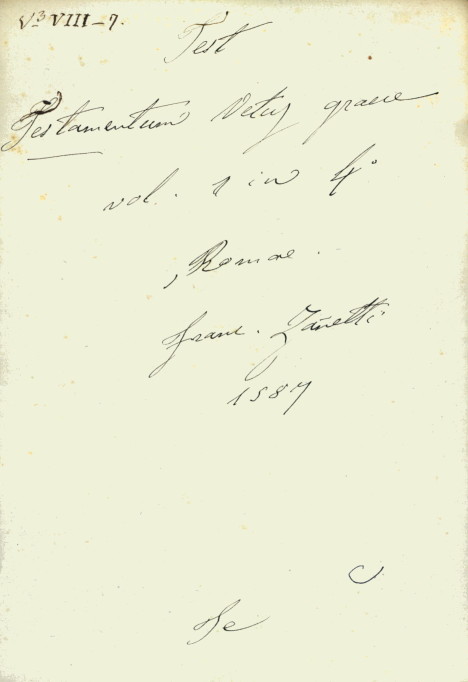 V³ VIII–7.
Test
Testamentum Vetus graece
vol. 1 in 4°
Romae.
franc. Zañetti
1587
C